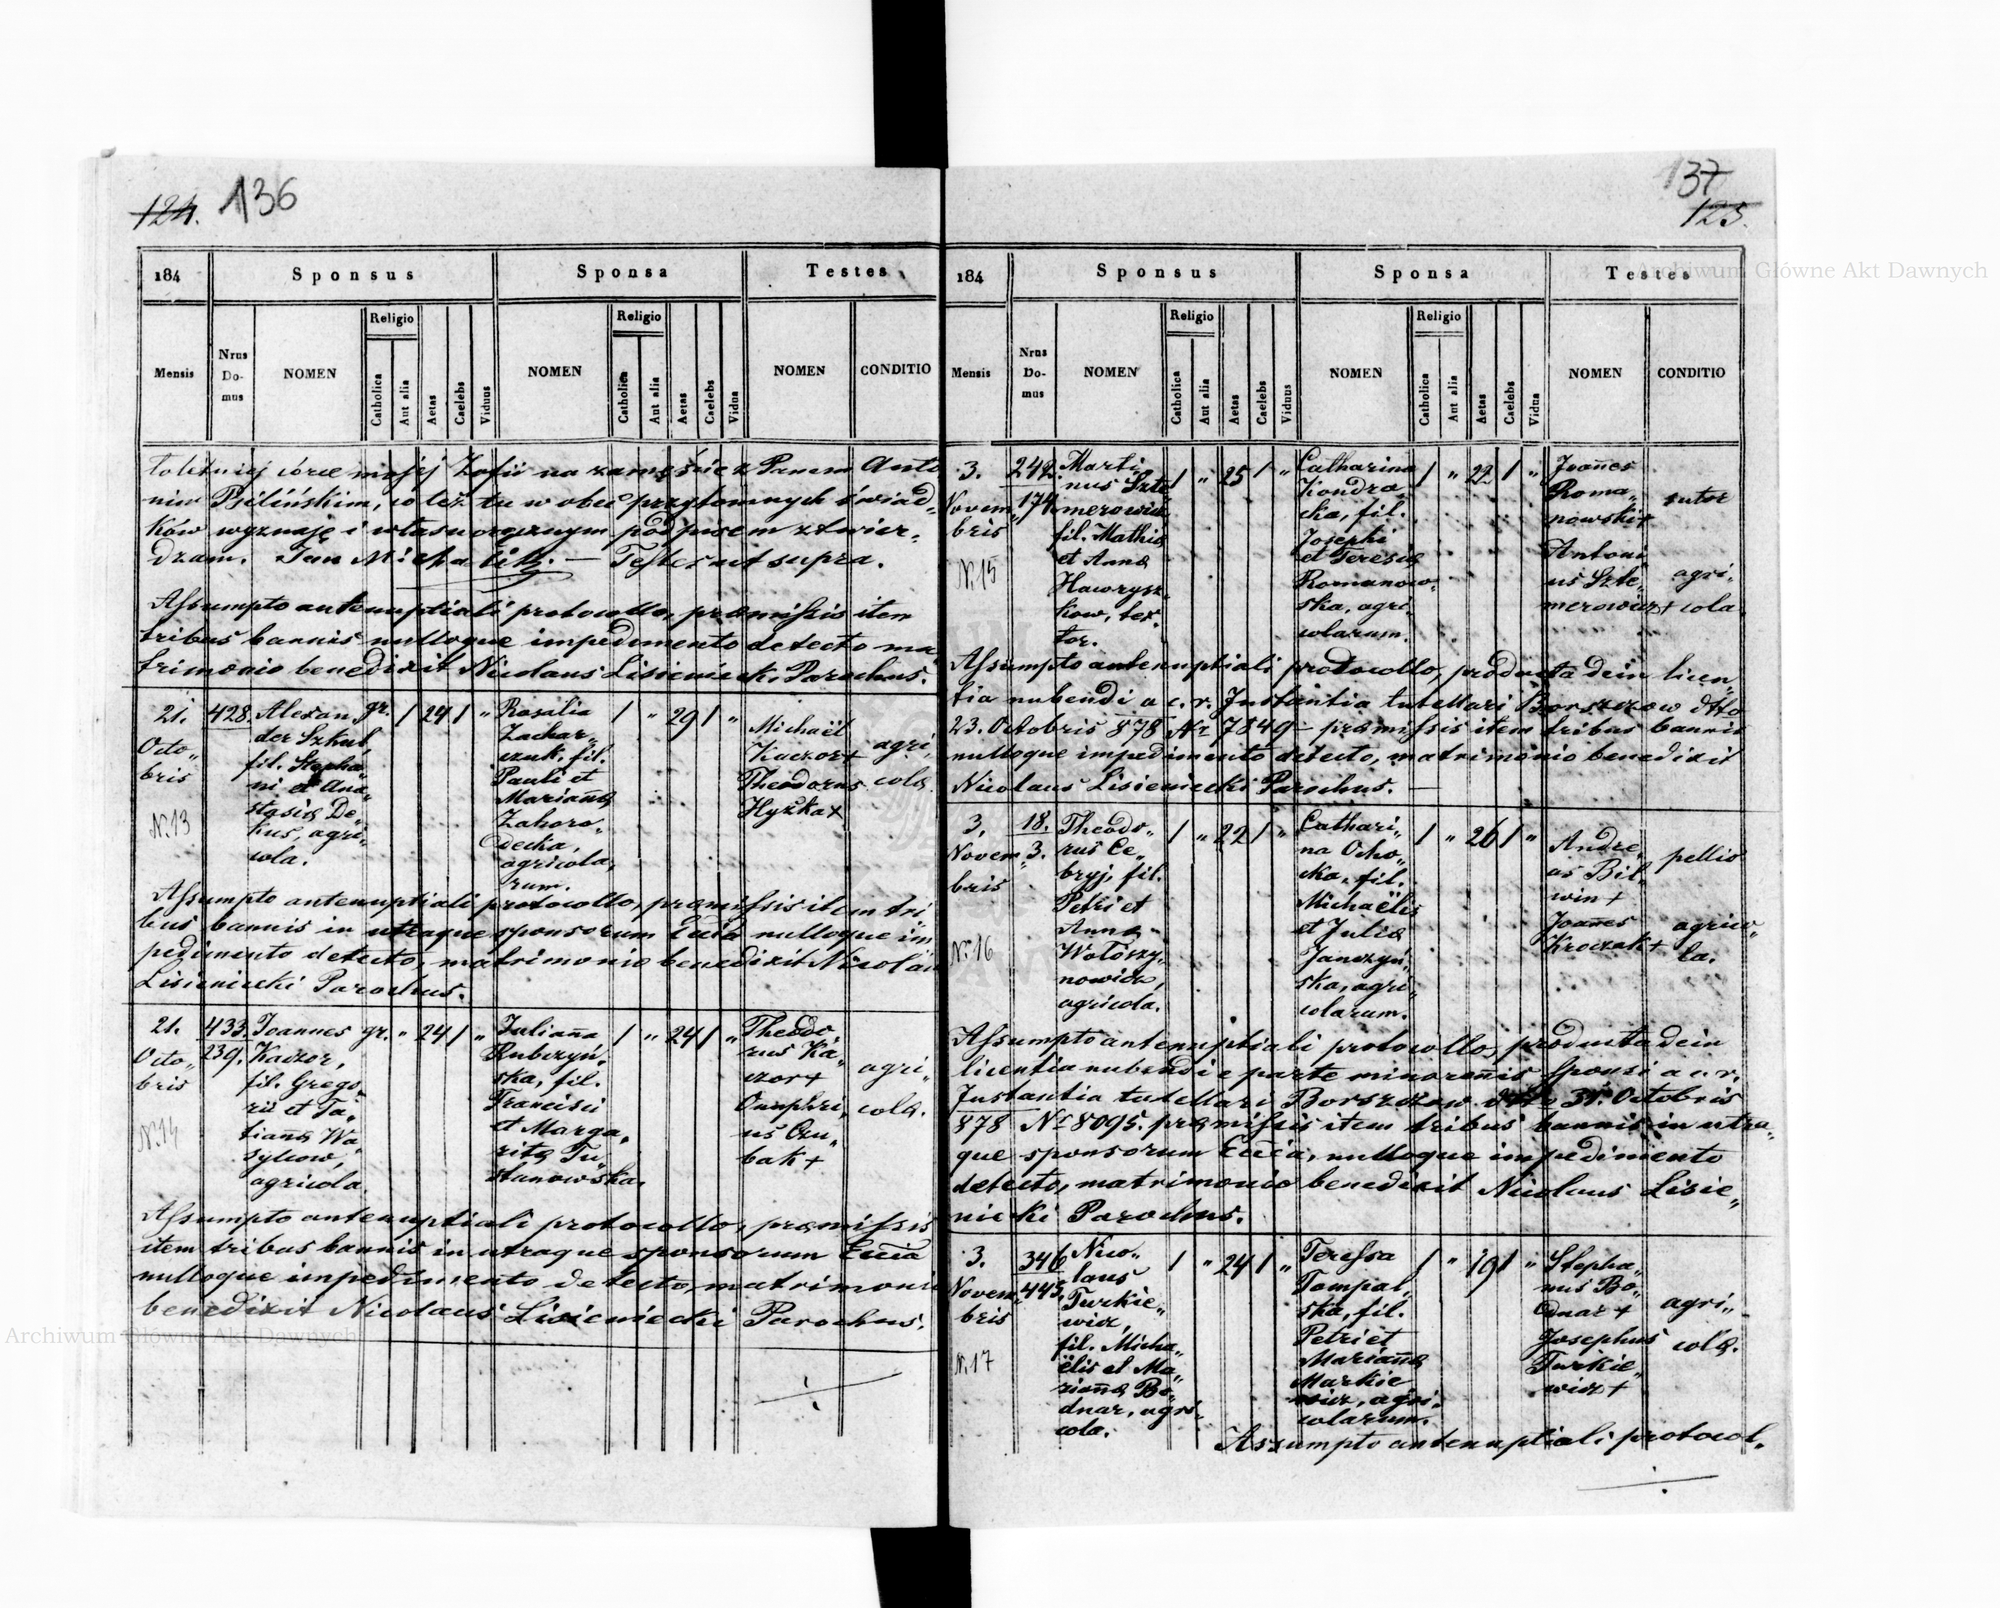 124. 136
184 Sponsus Sponsa Testes
Mensis Nrus Do- mus NOMEN Religio Catholica Aut alia Aetas Caelebs Viduus NOMEN Religio Catholica Aut alia Aetas Caelebs Vidua NOMEN CONDITIO
letniej córce mojej Zofii na zamęście z Panem Anto
nim Bilińskim, co też tu w obec przytomnych świad„
ków wyznaję i własnoręcznym podpisem ztwier„
dzam. Jan Michalitz. — Testes ut supra.
Assumpto antenuptiali protocollo, præmissis item
tribus bannis nulloque impedimento detecto ma
trimonio benedixit Nicolaus Lisieniecki Parochus.
21.
Octo„
bris
N.13
428.
Alexan
der Szkul,
fil. Stepha
ni et Ana„
stasiæ De„
kus, agri„
cola.
gr. / 24 / „
Rosalia
Zachar„
czuk, fil.
Pauli et
Mariannæ
Zahoro„
decka,
agricola„
rum.
/ „ 29 / „
Michaël
Kaczor+
Theodorus
Hyzka+
agri„
colæ.
Assumpto antenuptiali protocollo, præmissis item tri„
bus bannis in utraque sponsorum Eccia nulloque im
pedimento detecto, matrimonio benedixit Nicolaus
Lisieniecki Parochus.
21.
Octo„
bris
N.14
433.
239.
Joannes
Kaczor,
fil. Grego„
rii et Ta„
tiannæ Wa„
sylcow,
agricola.
gr. „ 24 / „
Julianna
Rubczyń„
ska, fil.
Francisci
et Marga„
ritæ Tu„
stanowska.
/ „ 24 / „
Theodo
rus Ka„
czor+
Onuphri„
us Czu„
bak+
agri„
colæ.
Assumpto antenuptiali protocollo, præmissis
item tribus bannis in utraque sponsorum Eccia
nulloque impedimento detecto, matrimonio
benedixit Nicolaus Lisieniecki Parochus.
137
125.
184 Sponsus Sponsa Testes
Mensis Nrus Do- mus NOMEN Religio Catholica Aut alia Aetas Caelebs Viduus NOMEN Religio Catholica Aut alia Aetas Caelebs Vidua NOMEN CONDITIO
3.
Novem„
bris
N.15
242.
174.
Marti„
nus Szte
merowicz,
fil. Mathiæ
et Annæ
Hawrysz„
kow, tex„
tor.
/ „ 25 / „
Catharina
Kondra„
cka, fil.
Josephi
et Teresiæ
Romanow„
ska, agri„
colarum.
/ „ 22 / „
Joannes
Roma„
nowski+
Antoni
us Szte„
merowicz+
sutor
agri„
cola.
Assumpto antenuptiali protocollo, producta dein licen„
tia nubendi a c. r. Instantia tutellari Borszczow dtto
23. Octobris 878 Nr 7849 – præmissis item tribus bannis
nulloque impedimento detecto, matrimonio benedixit
Nicolaus Lisieniecki Parochus. —
3.
Novem„
bris
N.16
18.
3.
Theodo„
rus Ce„
bryj, fil.
Petri et
Annæ
Wołoszy„
nowicz,
agricola.
/ „ 22 / „
Cathari„
na Ocho„
cka, fil.
Michaëlis
et Juliæ
Janczyń„
ska, agri„
colarum.
/ „ 26 / „
Andre„
as Bil„
win+
Joannes
Kroczak+
pellio
agrico„
la.
Assumpto antenuptiali protocollo, producta dein
licentia nubendi e parte minorennis Sponsi a c. r.
Instantia tutellari Borszczow dtto 31. Octobris
878 Nr 8095. præmissis item tribus bannis in utra„
que sponsorum Eccia, nulloque impedimento
detecto, matrimonio benedixit Nicolaus Lisie„
niecki Parochus.
3.
Novem„
bris
N.17
346
443.
Nico„
laus
Turkie„
wicz,
fil. Micha„
ëlis et Ma„
riannæ Bo„
dnar, agri„
cola.
/ „ 24 / „
Teressa
Tompal„
ska, fil.
Petri et
Mariannæ
Markie
wicz, agri„
colarum.
/ „ 19 / „
Stepha„
nus Bo„
dnar+
Josephus
Turkie„
wicz+
agri„
colæ.
Assumpto antenuptiali protocol„
Archiwum Główne Akt Dawnych
Archiwum Główne Akt Dawnych